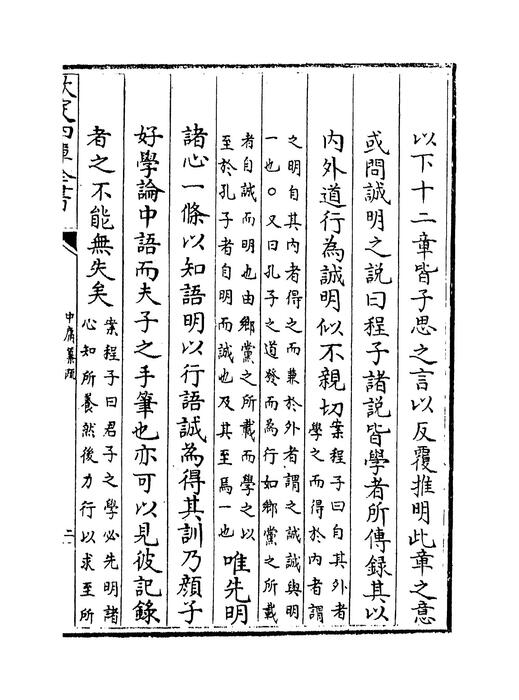 以下十二章皆子思之言以反覆推明此章之意
或問誠明之説曰程子諸説皆學者所傳録其以
内外道行為誠明似不親切
案程子曰自其外者
學之而得於内者謂
之明自其内者得之而兼於外者謂之誠誠與明
一也○又曰孔子之道發而為行如鄉黨之所載
者自誠而明也由鄉黨之所載而學之以
至於孔子者自明而誠也及其至焉一也
唯先明
諸心一條以知語明以行語誠為得其訓乃顔子
好學論中語而夫子之手筆也亦可以見彼記録
者之不能無失矣
案程子曰君子之學必先明諸
心知所養然後力行以求至所
欽定四庫全書
中庸纂疏